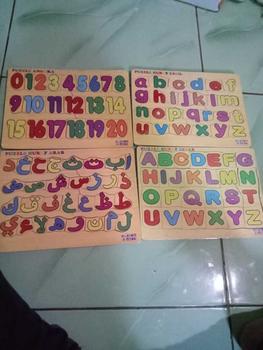 PUZZLE ANGKA
0 1 2 3 4 5 6 7 8
9 10 11 12 13 14
15 16 17 18 19 20
a b c d e f
g h i j k l m
n o p q r s t
u v w x y z
ا ب ت ث ج ح خ د
ذ ر ز س ش ص ض
ط ظ ع غ ف ق ك
ل م ن و ه لا ء ي
PUZZLE HURUF BESAR
A B C D E F G
H I J K L M N
O P Q R S T
U V W X Y Z